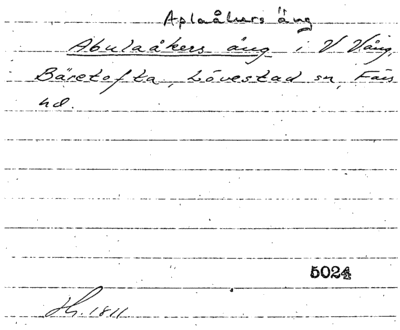 Aplaåkers äng
Abulaåkers äng i V Vång,
Bäretofta, Lövestad sn, Färs
hd.
5024
Hs. 1811